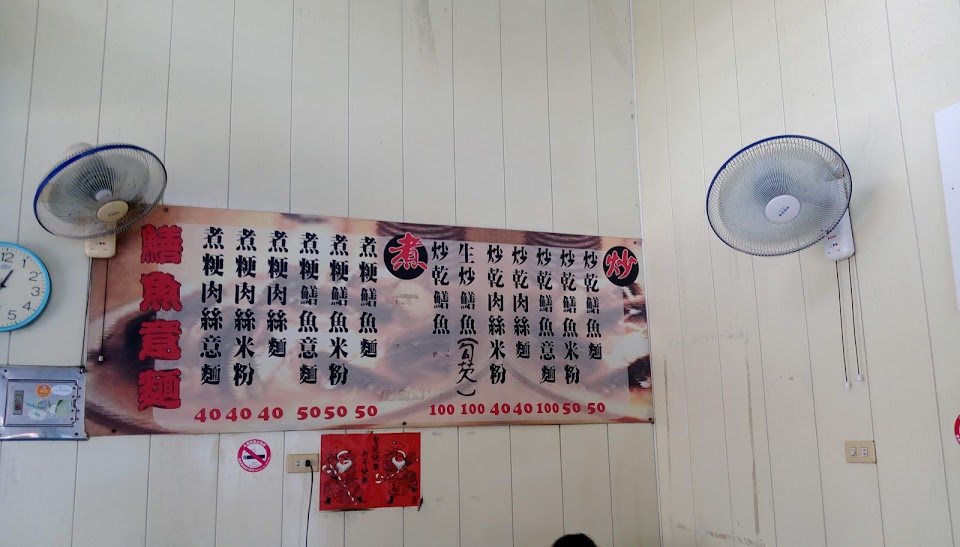 炒
炒乾鱔魚麵 50
炒乾鱔魚米粉 50
炒乾鱔魚意麵 100
炒乾肉絲麵 40
炒乾肉絲米粉 40
生炒鱔魚(勾芡) 100
炒乾鱔魚 100
煮
煮粳鱔魚麵 50
煮粳鱔魚米粉 50
煮粳鱔魚意麵 50
煮粳肉絲麵 40
煮粳肉絲米粉 40
煮粳肉絲意麵 40
鱔魚意麵